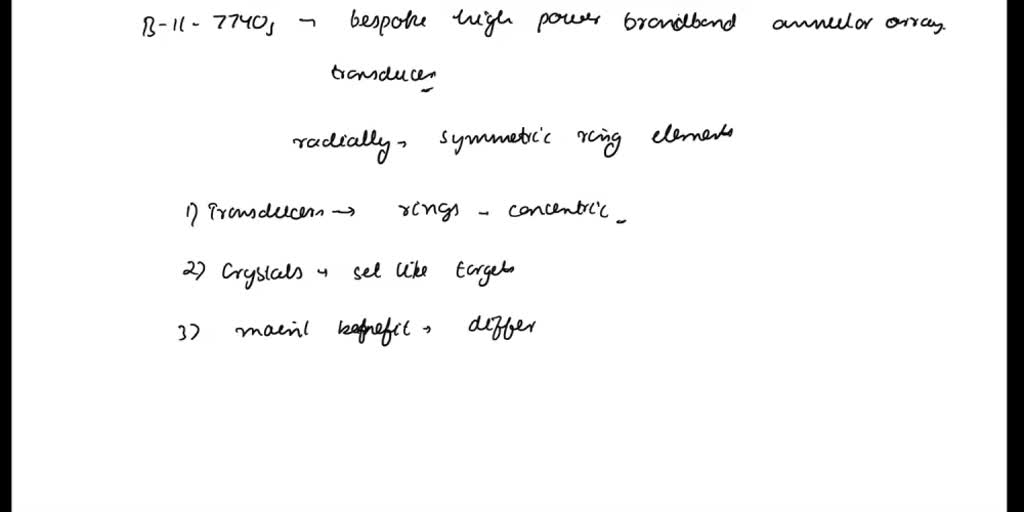 B-11-7740s → bespoke high power brandband annular array
transducer
radially, symmetric ring elements
1) Transducers → rings - concentric
2) Crystals → set like targets
3) main benefit, differ